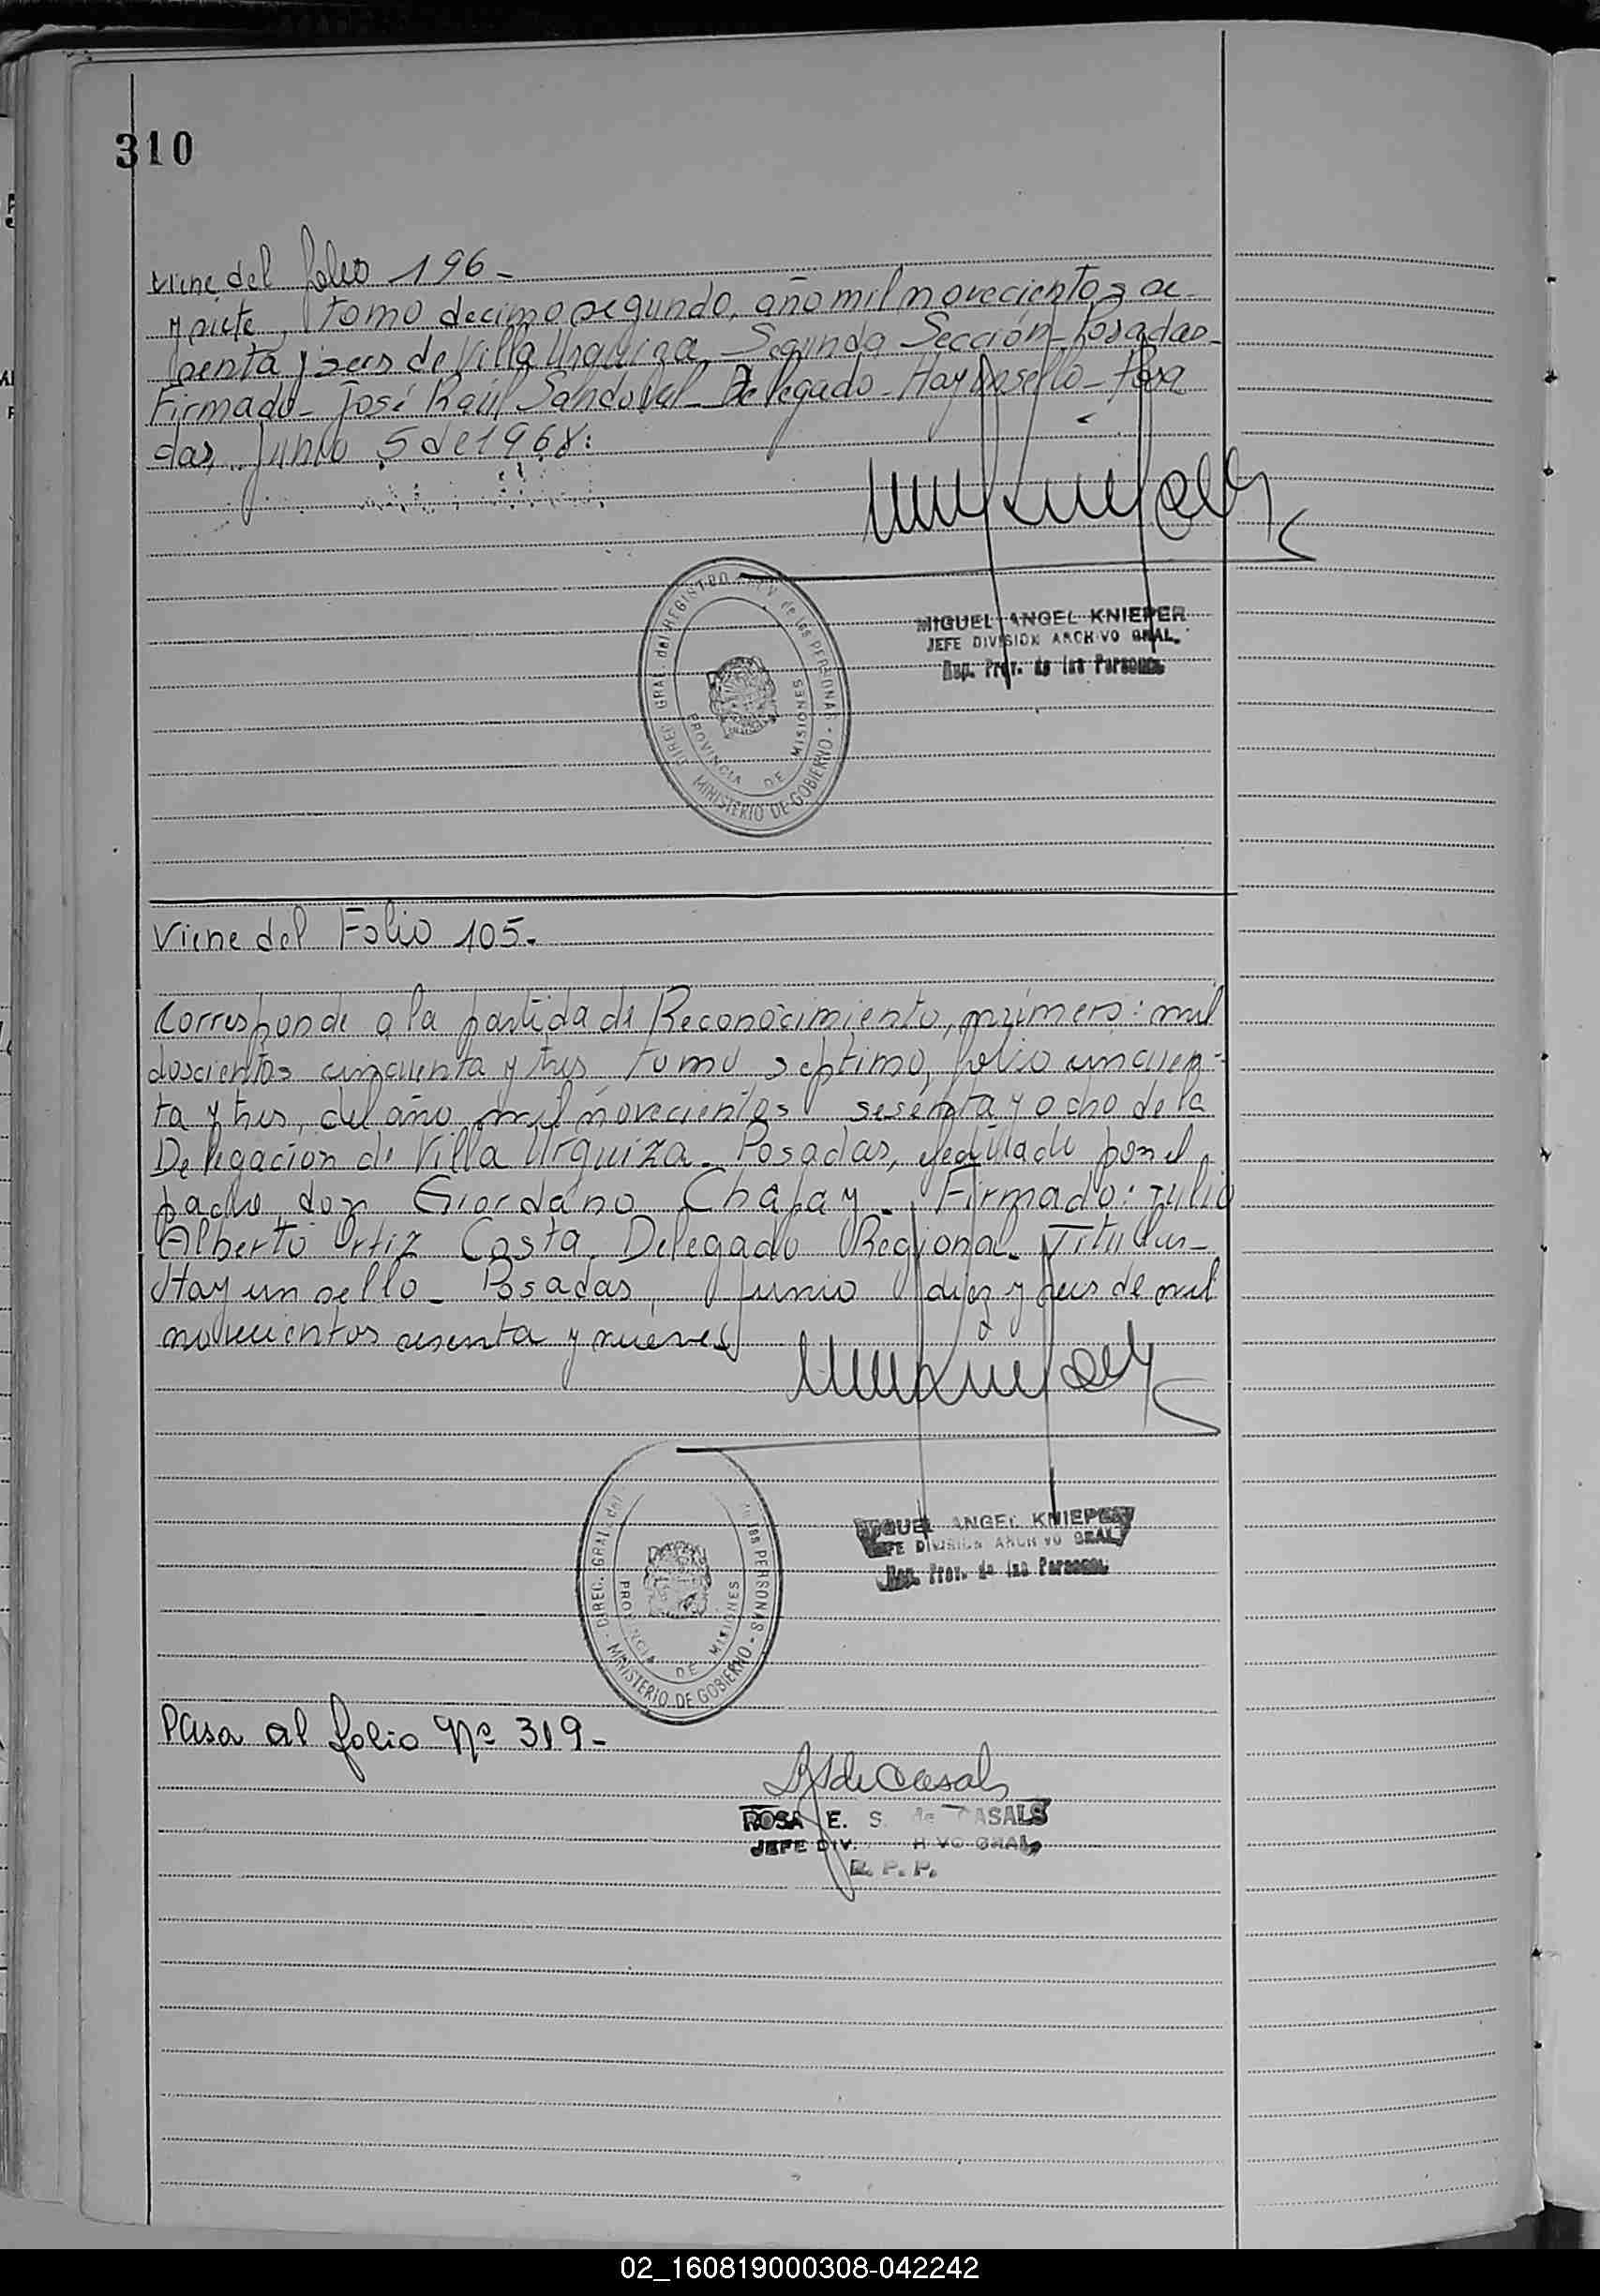 310
Viene del folio 196-
y siete, tomo decimo segundo, año mil novecientos se-
senta y seis de Villa Urquiza, Segunda Sección Posadas-
Firmado- José Raúl Sandoval- Delegado- Hay un sello- Posa
das, Junio 5 de 1968:
DIREC. GRAL. del REGISTRO de las PERSONAS - MINISTERIO DE GOBIERNO -
PROVINCIA DE MISIONES
MIGUEL ANGEL KNIEPER
JEFE DIVISION ARCHIVO GRAL.
Reg. Prov. de las Personas
Viene del Folio 105.
Corresponde a la partida de Reconocimiento, número: mil
doscientos cincuenta y tres, tomo septimo, folio cincuen-
ta y tres, del año mil novecientos sesenta y ocho de la
Delegación de Villa Urquiza. Posadas, efectuado por el
padre don Giordano Chapay. Firmado: Julio
Alberto Ortiz Costa. Delegado Regional. Titular-
Hay un sello- Posadas, Junio diez y seis de mil
novecientos sesenta y nueve
DIREC. GRAL. del PERSONAS - MINISTERIO DE GOBIERNO -
PROVINCIA DE MISIONES
MIGUEL ANGEL KNIEPER
JEFE DIVISION ARCHIVO GRAL.
Reg. Prov. de las Personas
Pasa al folio Nº 319-
RSdeCasals
ROSA E. S. de CASALS
JEFE DIV. ARCHIVO GRAL.
R. P. P.
02_160819000308-042242